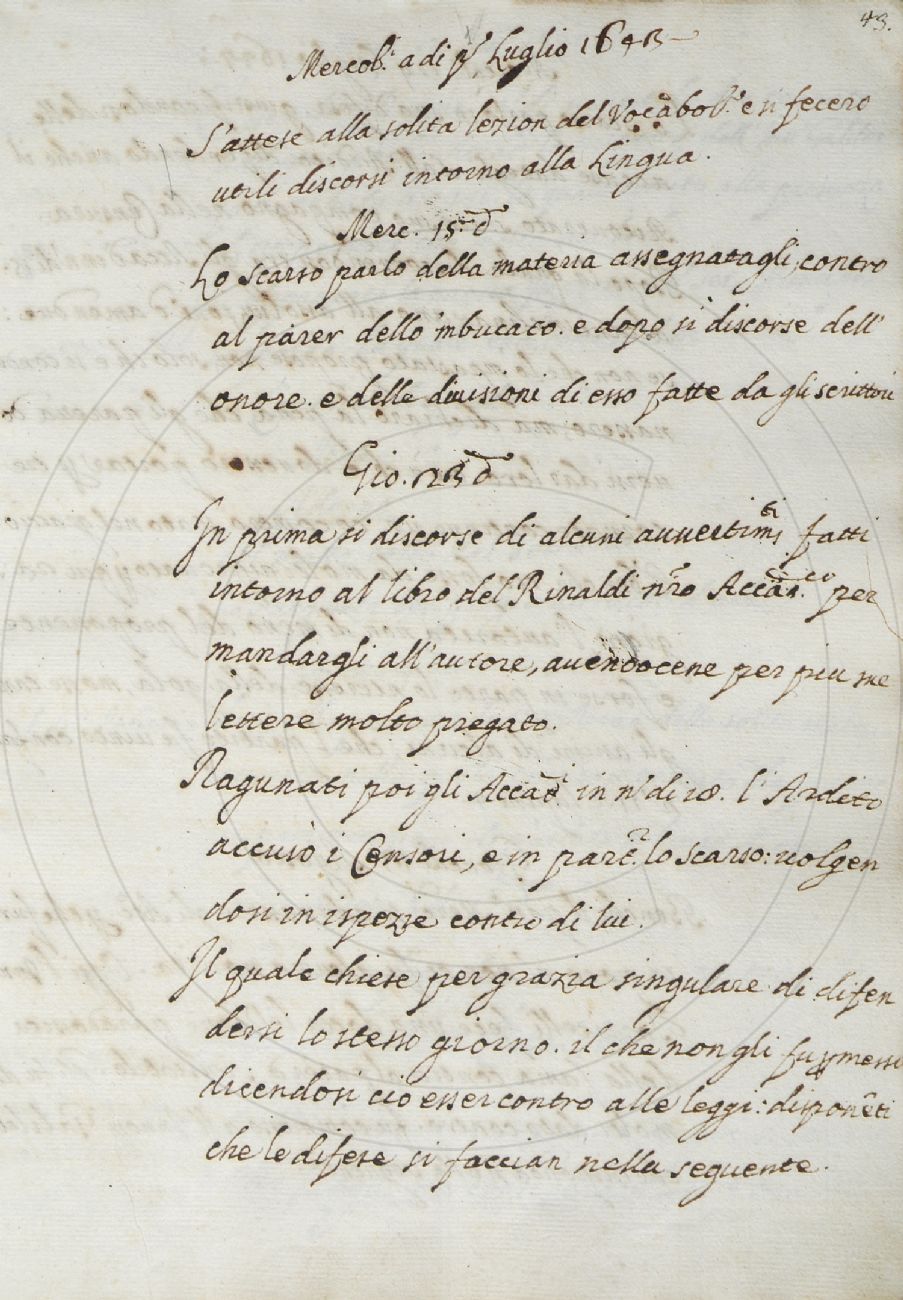 43.
Mercob. a di p.º Luglio 1643
S'attese alla solita lezion del Vocabol.º e si fecero
utili discorsi intorno alla Lingua.
Merc. 15. d.º
Lo scarso parlò della materia assegnatagli, contro
al parer dello 'mbucato. e dopo si discorse dell'
onore. e delle diuisioni di esso fatte da gli scrittori
Gio. 23 d.º
In prima si discorse di alcuni auuertim.ti fatti
intorno al libro del Rinaldi nr̃o Accad.co per
mandargli all'autore, auendocene per piu sue
lettere molto pregato.
Ragunati poi gli Accad.i in n.º di 18. l'Ardito
accusò i Censori, e in par.re lo scarso: uolgen
dosi in ispezie contro di lui.
Il quale chiese per grazia singulare di difen
dersi lo stesso giorno. il che non gli fu pmesso
dicendosi ciò esser contro alle leggi: disponẽti
che le difese si faccian nella seguente.